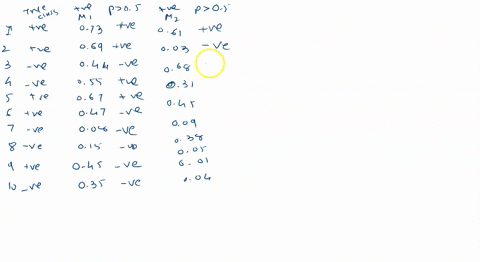 True class +ve M1 P>0.5 +ve M2 P>0.5
1 +ve 0.73 +ve 0.61 +ve
2 +ve 0.69 +ve 0.03 -ve
3 -ve 0.44 -ve 0.68
4 -ve 0.55 +ve 0.31
5 +ve 0.67 +ve 0.45
6 +ve 0.47 -ve 0.09
7 -ve -ve 0.38
8 -ve 0.15 0.05
9 +ve 0.45 -ve 0.01
10 -ve 0.35 -ve 0.04